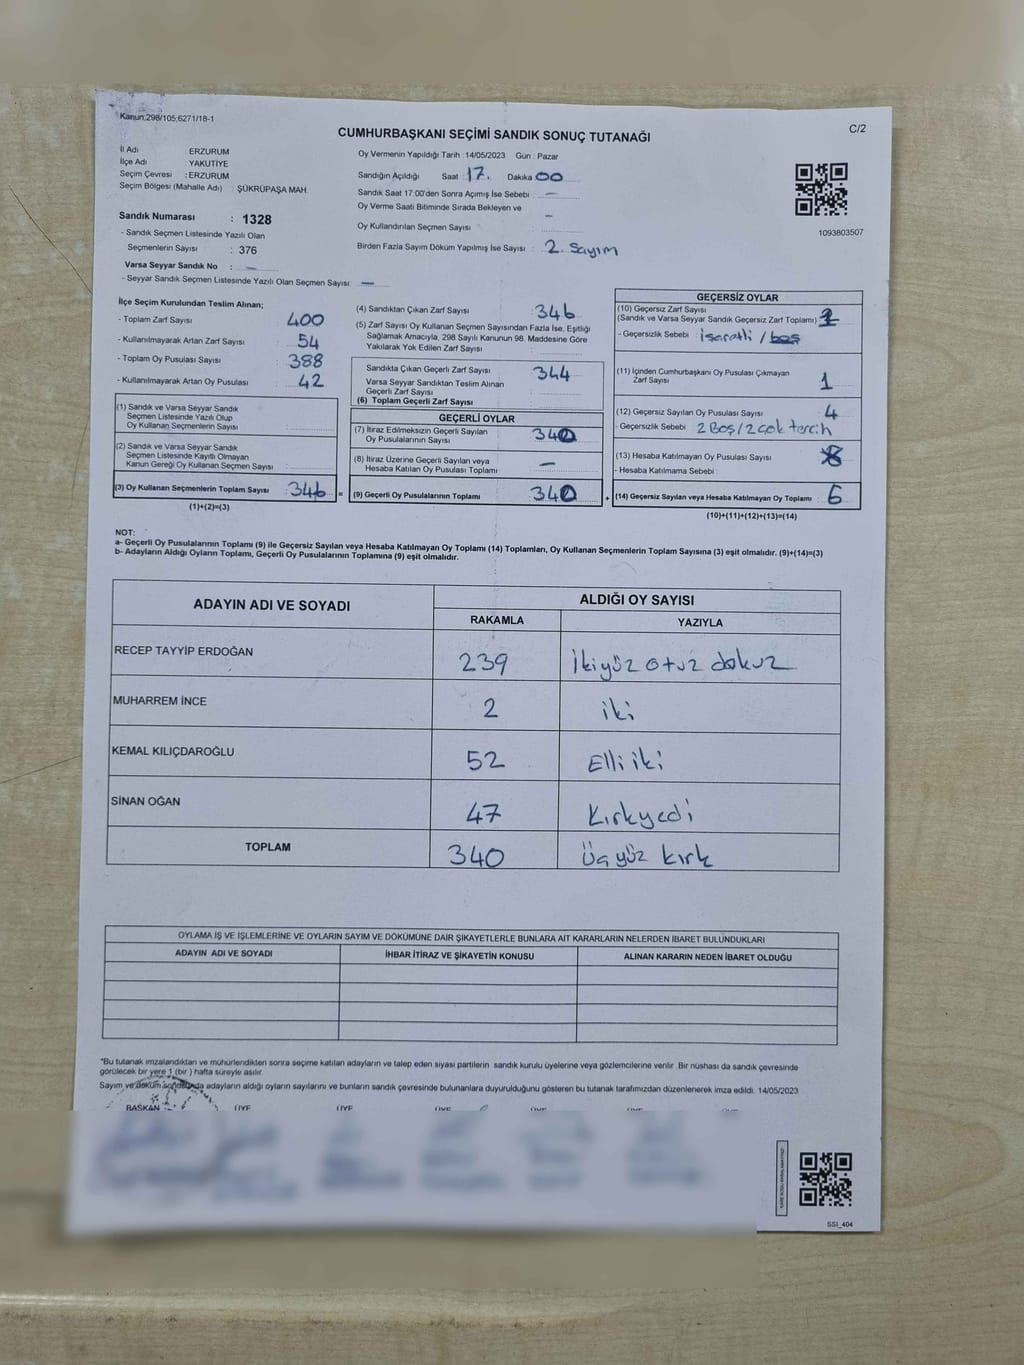 Kanun;298/105;6271/18-1
C/2
CUMHURBAŞKANI SEÇİMİ SANDIK SONUÇ TUTANAĞI
İl Adı ERZURUM
İlçe Adı : YAKUTİYE
Seçim Çevresi : ERZURUM
Seçim Bölgesi (Mahalle Adı) : ŞÜKRÜPAŞA MAH.
Sandık Numarası : 1328
- Sandık Seçmen Listesinde Yazılı Olan
Seçmenlerin Sayısı : 376
Varsa Seyyar Sandık No : —
- Seyyar Sandık Seçmen Listesinde Yazılı Olan Seçmen Sayısı: —
Oy Vermenin Yapıldığı Tarih :14/05/2023 Gün : Pazar
Sandığın Açıldığı Saat : 17. Dakika 00
Sandık Saat 17.00'den Sonra Açımış İse Sebebi : —
Oy Verme Saati Bitiminde Sırada Bekleyen ve
Oy Kullandırılan Seçmen Sayısı : —
Birden Fazla Sayım Döküm Yapılmış İse Sayısı : 2. Sayım
1093803507
İlçe Seçim Kurulundan Teslim Alınan;
- Toplam Zarf Sayısı : 400
- Kullanılmayarak Artan Zarf Sayısı : 54
- Toplam Oy Pusulası Sayısı : 388
- Kullanılmayarak Artan Oy Pusulası : 42
(1) Sandık ve Varsa Seyyar Sandık
Seçmen Listesinde Yazılı Olup
Oy Kullanan Seçmenlerin Sayısı :
(2) Sandık ve Varsa Seyyar Sandık
Seçmen Listesinde Kayıtlı Olmayan
Kanun Gereği Oy Kullanan Seçmen Sayısı :
(3) Oy Kullanan Seçmenlerin Toplam Sayısı 346 =
(1)+(2)=(3)
(4) Sandıktan Çıkan Zarf Sayısı : 346
(5) Zarf Sayısı Oy Kullanan Seçmen Sayısından Fazla İse, Eşitliği
Sağlamak Amacıyla, 298 Sayılı Kanunun 98. Maddesine Göre
Yakılarak Yok Edilen Zarf Sayısı :
Sandıkta Çıkan Geçerli Zarf Sayısı : 344
Varsa Seyyar Sandıktan Teslim Alınan
Geçerli Zarf Sayısı :
(6) Toplam Geçerli Zarf Sayısı
GEÇERLİ OYLAR
(7) İtiraz Edilmeksizin Geçerli Sayılan
Oy Pusulalarının Sayısı : 340
(8) İtiraz Üzerine Geçerli Sayılan veya
Hesaba Katılan Oy Pusulası Toplamı : —
(9) Geçerli Oy Pusulalarının Toplamı 340 +
GEÇERSİZ OYLAR
(10) Geçersiz Zarf Sayısı
(Sandık ve Varsa Seyyar Sandık Geçersiz Zarf Toplamı) :
- Geçersizlik Sebebi : işaretli /
(11) İçinden Cumhurbaşkanı Oy Pusulası Çıkmayan
Zarf Sayısı : 1
(12) Geçersiz Sayılan Oy Pusulası Sayısı : 4
- Geçersizlik Sebebi : 2 Boş/2 çok tercih
(13) Hesaba Katılmayan Oy Pusulası Sayısı :
- Hesaba Katılmama Sebebi :
(14) Geçersiz Sayılan veya Hesaba Katılmayan Oy Toplamı 6
(10)+(11)+(12)+(13)=(14)
NOT:
a- Geçerli Oy Pusulalarının Toplamı (9) ile Geçersiz Sayılan veya Hesaba Katılmayan Oy Toplamı (14) Toplamları, Oy Kullanan Seçmenlerin Toplam Sayısına (3) eşit olmalıdır. (9)+(14)=(3)
b- Adayların Aldığı Oyların Toplamı, Geçerli Oy Pusulalarının Toplamına (9) eşit olmalıdır.
ADAYIN ADI VE SOYADI
ALDIĞI OY SAYISI
RAKAMLA YAZIYLA
RECEP TAYYİP ERDOĞAN 239 İkiyüz otuz dokuz
MUHARREM İNCE 2 iki
KEMAL KILIÇDAROĞLU 52 Elli iki
SİNAN OĞAN 47 Kırkyedi
TOPLAM 340 Üçyüz kırk
OYLAMA İŞ VE İŞLEMLERİNE VE OYLARIN SAYIM VE DÖKÜMÜNE DAİR ŞİKAYETLERLE BUNLARA AİT KARARLARIN NELERDEN İBARET BULUNDUKLARI
ADAYIN ADI VE SOYADI İHBAR İTİRAZ VE ŞİKAYETİN KONUSU ALINAN KARARIN NEDEN İBARET OLDUĞU
*Bu tutanak imzalandıktan ve mühürlendikten sonra seçime katılan adayların ve talep eden siyasi partilerin sandık kurulu üyelerine veya gözlemcilerine verilir. Bir nüshası da sandık çevresinde
görülecek bir yere 1 (bir ) hafta süreyle asılır.
Sayım ve döküm sonucunda adayların aldığı oyların sayılarını ve bunların sandık çevresinde bulunanlara duyurulduğunu gösteren bu tutanak tarafımızdan düzenlenerek imza edildi. 14/05/2023
BAŞKAN ÜYE ÜYE ÜYE ÜYE
SSI_404